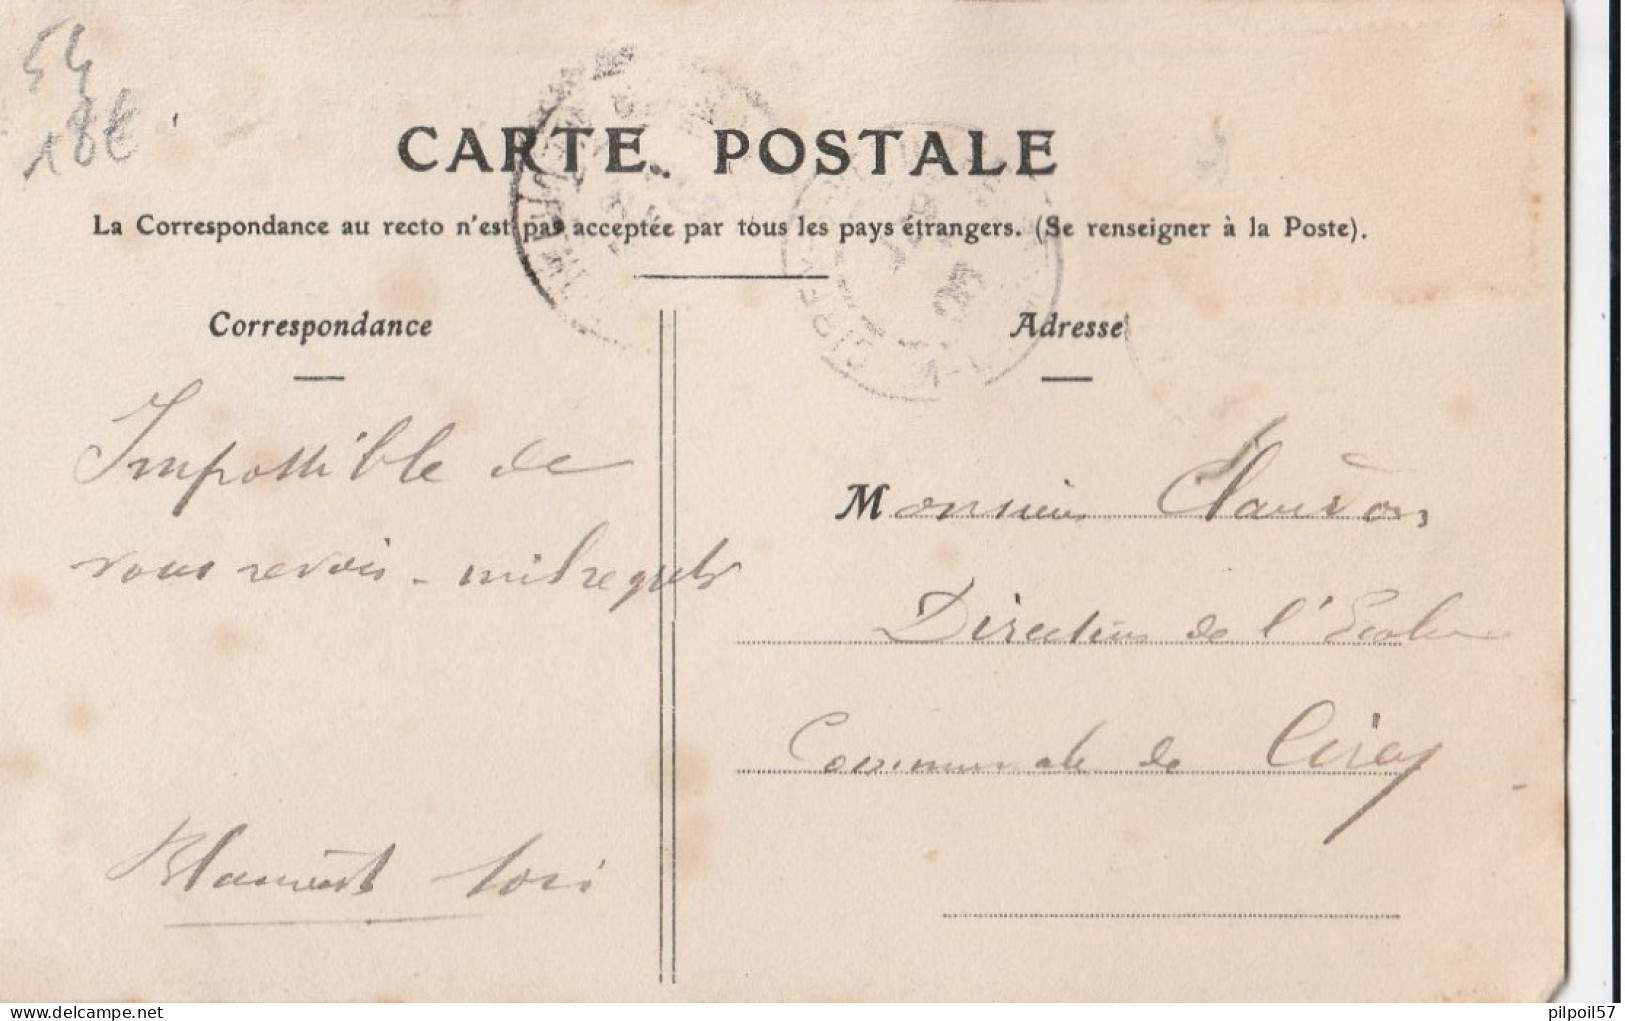 54
18€
CARTE POSTALE
La Correspondance au recto n'est pas acceptée par tous les pays étrangers. (Se renseigner à la Poste).
Correspondance
Adresse
Impossible de
vous revoir -
Monsieur
Directeur de l'Ecole
Communale de Cirey
Blamont
delcampe.net
pilpoil57